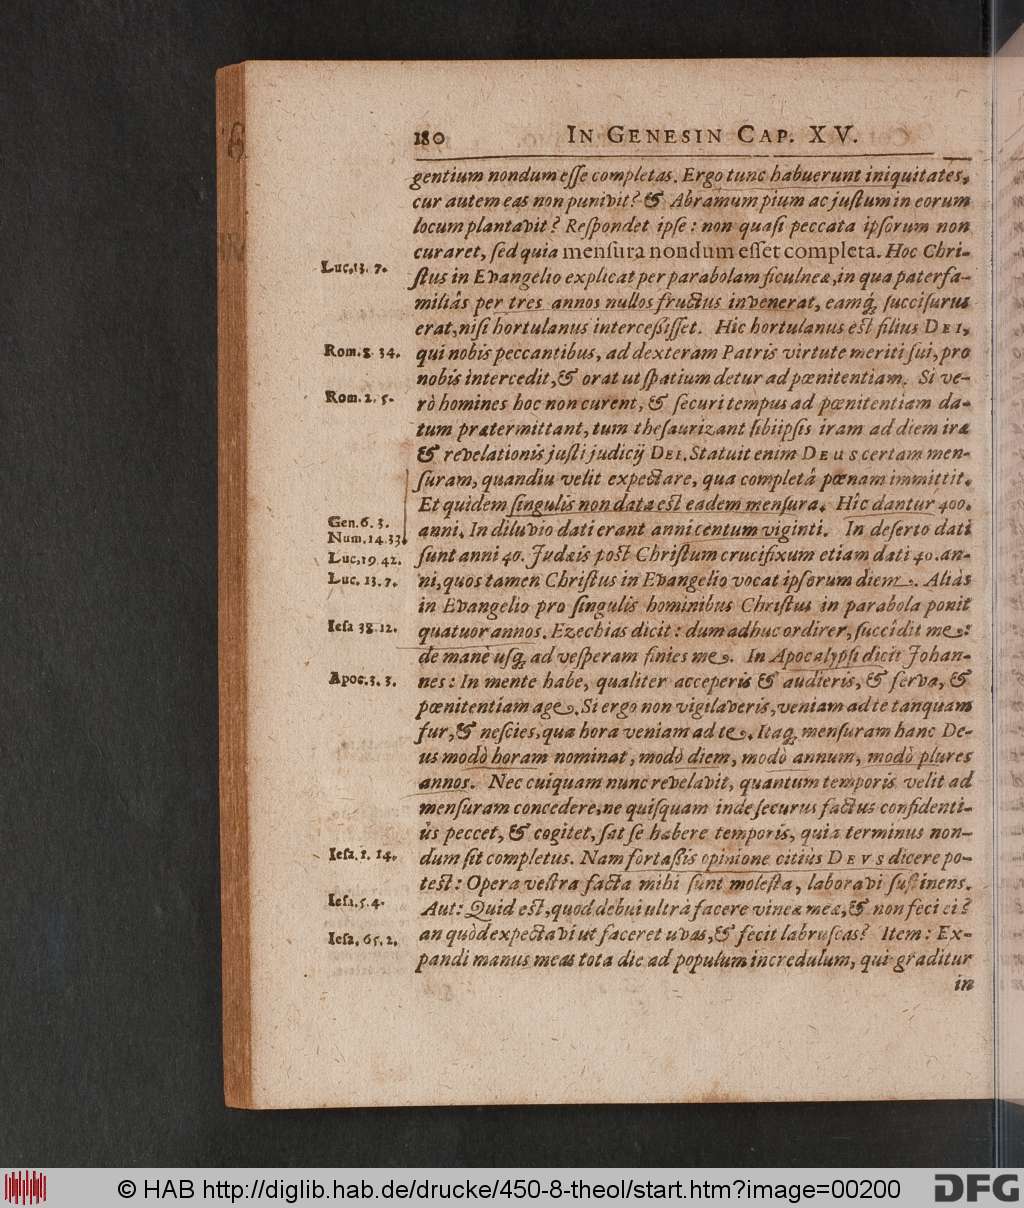 180 IN GENESIN CAP. XV.
gentium nondum eſſe completas. Ergo tunc habuerunt iniquitates,
cur autem eas non punivit? & Abramum pium ac juſtum in eorum
locum plantavit? Reſpondet ipſe: non quaſi peccata ipſorum non
curaret, ſed quia menſura nondum eſſet completa. Hoc Chri-
Luc.13. 7.
ſtus in Evangelio explicat per parabolam ficulneæ, in qua paterfa-
miliâs per tres annos nullos fructus invenerat, eamq́; ſucciſurus
erat, niſi hortulanus interceſſiſſet. Hic hortulanus eſt filius DEI,
Rom.8. 34.
qui nobis peccantibus, ad dexteram Patris virtute meriti ſui, pro
nobis intercedit, & orat ut ſpatium detur ad pœnitentiam. Si ve-
Rom. 2. 5.
rò homines hoc non curent, & ſecuri tempus ad pœnitentiam da-
tum prætermittant, tum theſaurizant ſibiipſis iram ad diem iræ
& revelationis juſti judicij DEI. Statuit enim DEUS certam men-
ſuram, quandiu velit expectare, qua completâ pœnam immittit.
Et quidem ſingulis non data eſt eadem menſura. Hîc dantur 400.
Gen. 6. 3.
Num. 14.33.
anni. In diluvio dati erant anni centum viginti. In deſerto dati
Luc.19 42.
ſunt anni 40. Judæis poſt Chriſtum crucifixum etiam dati 40. an-
Luc. 13. 7.
ni, quos tamen Chriſtus in Evangelio vocat ipſorum diem. Aliàs
in Evangelio pro ſingulis hominibus Chriſtus in parabola ponit
Ieſa 38. 12.
quatuor annos. Ezechias dicit: dum adhuc ordirer, ſuccidit me:
de manè uſq; ad veſperam finies me. In Apocalypſi dicit Johan-
Apoc. 3. 3.
nes: In mente habe, qualiter acceperis & audieris, & ſerva, &
pœnitentiam age. Si ergo non vigilaveris, veniam ad te tanquam
fur, & neſcies, qua hora veniam ad te. Itaq; menſuram hanc De-
us modò horam nominat, modò diem, modò annum, modò plures
annos. Nec cuiquam nunc revelavit, quantum temporis velit ad
menſuram concedere, ne quiſquam inde ſecurus factus confidenti-
ùs peccet, & cogitet, ſat ſe habere temporis, quia terminus non-
Ieſa. 1. 14.
dum ſit completus. Nam fortaſſis opinione citiùs DEVS dicere po-
teſt: Opera veſtra facta mihi ſunt moleſta, laboravi ſuſtinens.
Ieſa. 5. 4.
Aut: Quid eſt, quod debui ultrà facere vineæ meæ, & non feci ei?
Ieſa. 65. 2.
an quòd expectavi ut faceret uvas, & fecit labruſcas? Item: Ex-
pandi manus meas tota die ad populum incredulum, qui graditur
in
© HAB http://diglib.hab.de/drucke/450-8-theol/start.htm?image=00200
DFG